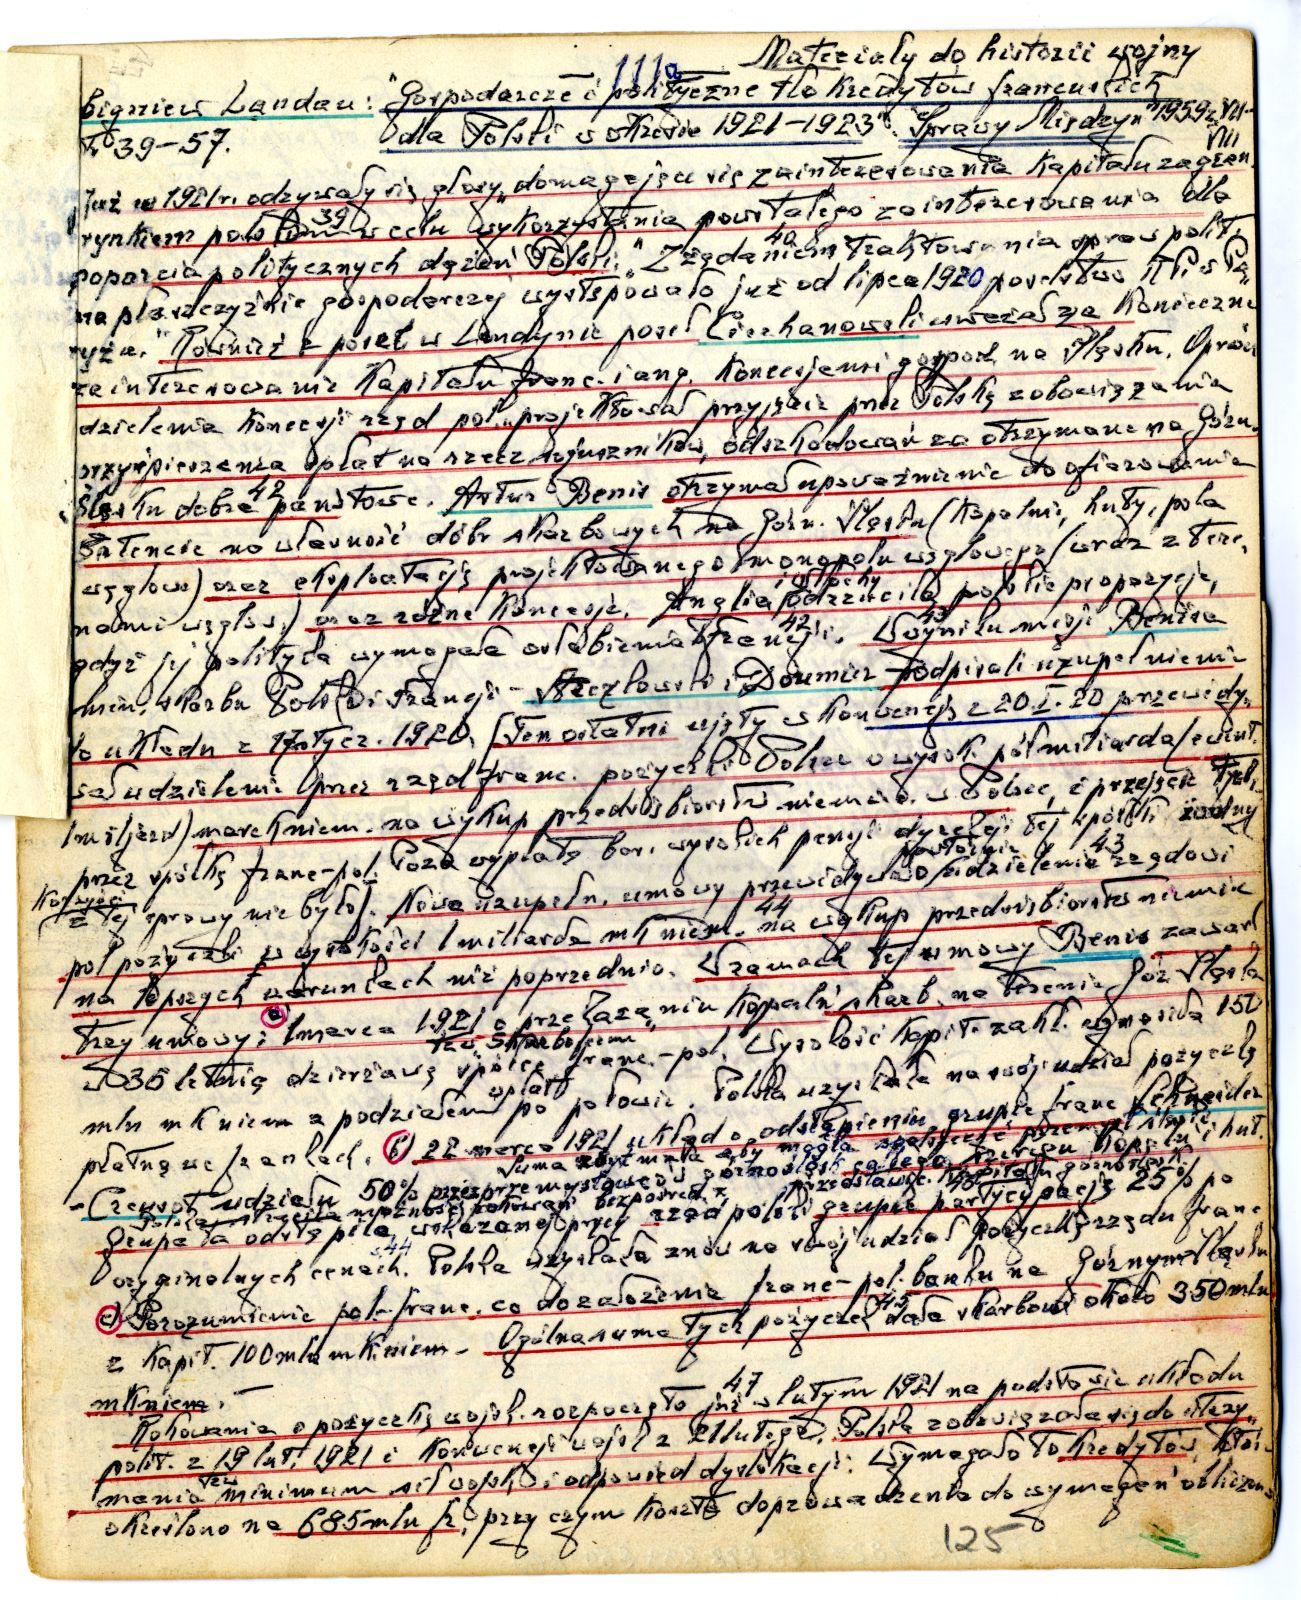 Materiały do historii wojny
111a
bigniew Landau: "Gospodarcze i polityczne tło kredytów francuskich
39-57. dla Polski w okresie 1921-1923". "Sprawy Międzyn" 1959 z. VII-VIII
Już w 1921 r. odzywały się głosy "domagające się zainteresowania kapitału zagran.
rynkiem polskim w celu wykorzystania powstałego zainteresowania dla
39
poparcia politycznych dążeń Polski." Z żądaniem traktowania spraw polit.
40
na płaszczyźnie gospodarczej występowało już od lipca 1920 poselstwo w Pa-
ryżu." Również poseł w Londynie poseł Ciechanowski uważał za konieczne
zainteresowanie kapitału franc. i ang. koncesjami gospod. na Śląsku. Oprócz
dzielenia koncesji rząd pol. projektował przyjęcie przez Polskę zobowiązania
przyśpieszenia spłat na rzecz sojuszników, odszkodowań za otrzymane na Górn.
Śląsku dobra państwowe. Artur Benis otrzymał upoważnienie do ofiarowania
42
Entencie na własność dóbr skarbowych na Górn. Śląsku (kopalnie, huty, pola
węglowe) oraz eksploatację projektowanego monopolu węglowego (wraz z tere-
nami węglow.) oraz różne koncesje. Anglia i Włochy odrzuciła polskie propozycje,
gdyż jej polityka wymagała osłabienia Francji. W wyniku misji Benisa
42 43
min. skarbu Polski i Francji - Steczkowski i Doumier podpisali uzupełnienie
do układu z 17 stycz. 1920. [Ten ostatni ujęty w konwencję z 20.I.20 przewidy-
wał udzielenie przez rząd franc. pożyczki Polsce w wysok. pół miliarda (ewent.
1 miljard) marek niem. na wykup przedsiębiorstw niemiec. w Polsce, i przejęcie tychże
przez spółkę franc-pol. Poza wypłatą bar. wysokich pensji dyrekcji tej spółki żadnej
korzyści z tej sprawy nie było]. Nowa uzupełn. umowy przewidywała udzielenie rządowi
43
pol pożyczki w wysokości 1 miliarda mk niem. na wykup przedsiębiorstw niemiec
44
na lepszych warunkach niż poprzednio. W ramach tej umowy Benis zawarł
trzy umowy: a) 1 marca 1921 o przekazaniu kopalń skarb. na terenie Gór. Śląska
w 36 letnią dzierżawę spółce franc.-pol. Wysokość kapit. zakł. wynosiła 150
tzw "Skarbofermu"
mln mk niem z podziałem wpłat po połowie. Polska uzyskała na swój udział pożyczkę
płatną we frankach. b) 22 marca 1921 układ o odstąpieniu grupie franc Schneider
- Creusot udziału 50%
grupa ta odstąpiła wskazanej przez rząd polski grupie partycypację 25% po
oryginalnych cenach. Polska uzyskała znów na swój udział pożyczkę rządu franc
44
c) Porozumienie pol-franc. co do założenia franc-pol. banku na Górnym Śląsku
z kapit. 100 mln mk niem - Ogólna suma tych pożyczek dała skarbowi około 350 mln
45
mk niem. -
Rokowania o pożyczkę wojsk. rozpoczęto już w lutym 1921 na podstawie układu
47
polit. z 19 lut. 1921 i konwencji wojsk z 21 lutego. Polska zobowiązała się do utrzy-
mania tzw minimum sił wojsk. i odpowied dyslokacji. Wymagało to kredytów, które
określono na 685 mln fr, przy czym koszta doprowadzenia do wymagań obliczono
125